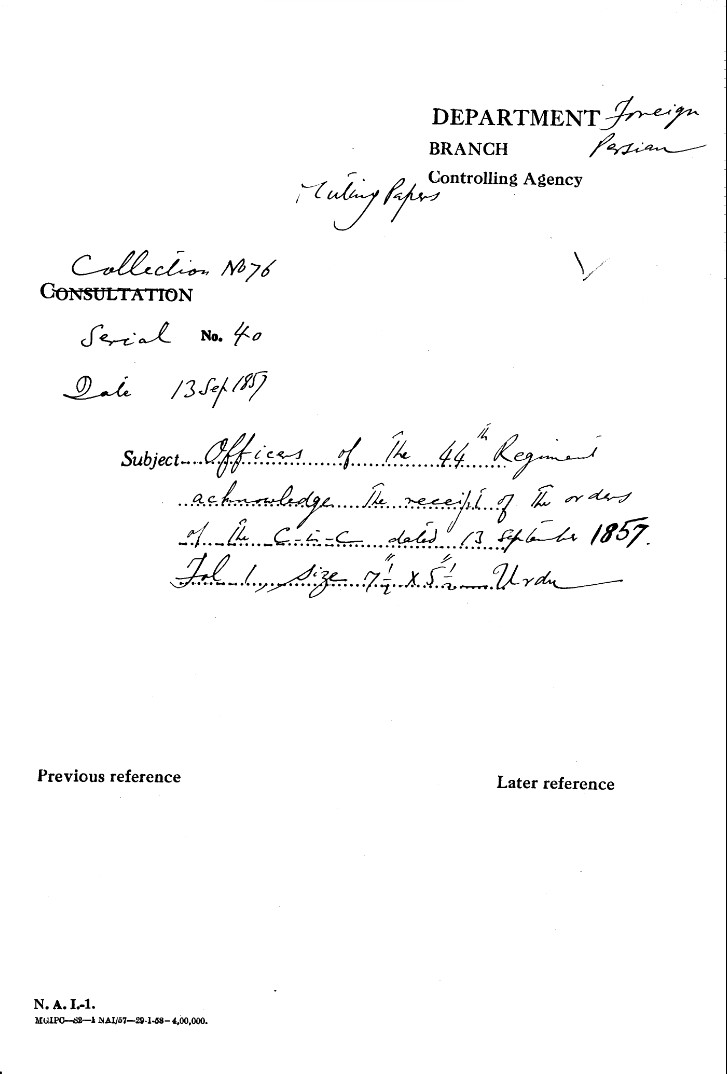 DEPARTMENT Foreign
BRANCH Persian
Controlling Agency
Mutiny Papers
Collection No 76
CONSULTATION
Serial No. 40
Date 13 Sep 1857
Subject Officers of the 44th Regiment
acknowledge the receipt of the orders
of the C-in-C dated 13 September 1857.
Fol 1, size 7 1/2" x 5 1/2" Urdu
Previous reference
Later reference
N. A. I.-1.
MGIPC—S2—1 NAI/57—29-1-58—4,00,000.